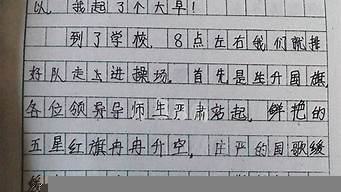 以，我起了个大早！
到了学校，8点左右我们就排
好队走上进操场。首先是生升国旗，
各位领导导师生严肃站起，鲜艳的
五星红旗冉冉升空，庄严的国歌缓